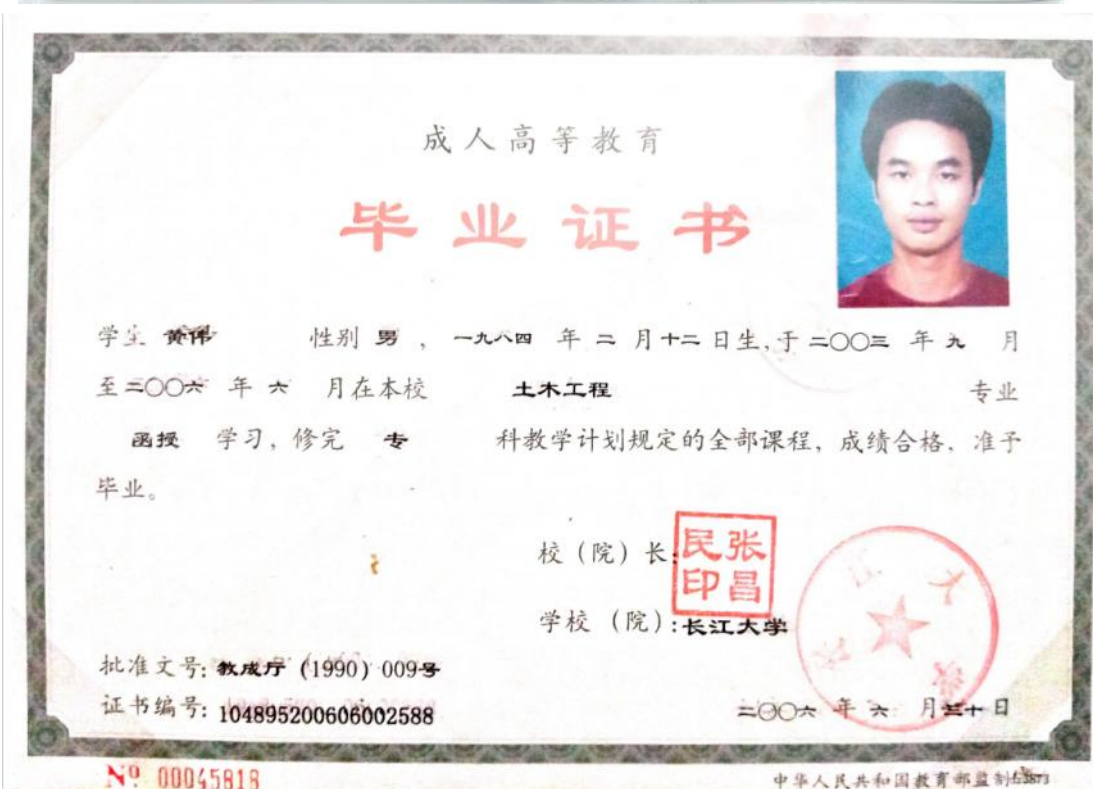 成人高等教育
毕业证书
学生 黄伟 性别 男 , 一九八四 年 二 月 十二 日生,于 二〇〇三 年 九 月
至 二〇〇六 年 六 月在本校 土木工程 专业
函授 学习, 修完 专 科教学计划规定的全部课程, 成绩合格, 准予
毕业。
校(院)长:
张昌民印
学校 (院): 长江大学
批准文号: 教成厅 (1990) 009号
证书编号: 104895200606002588
二〇〇六 年 六 月 三十 日
Nº 00045818
中华人民共和国教育部监制